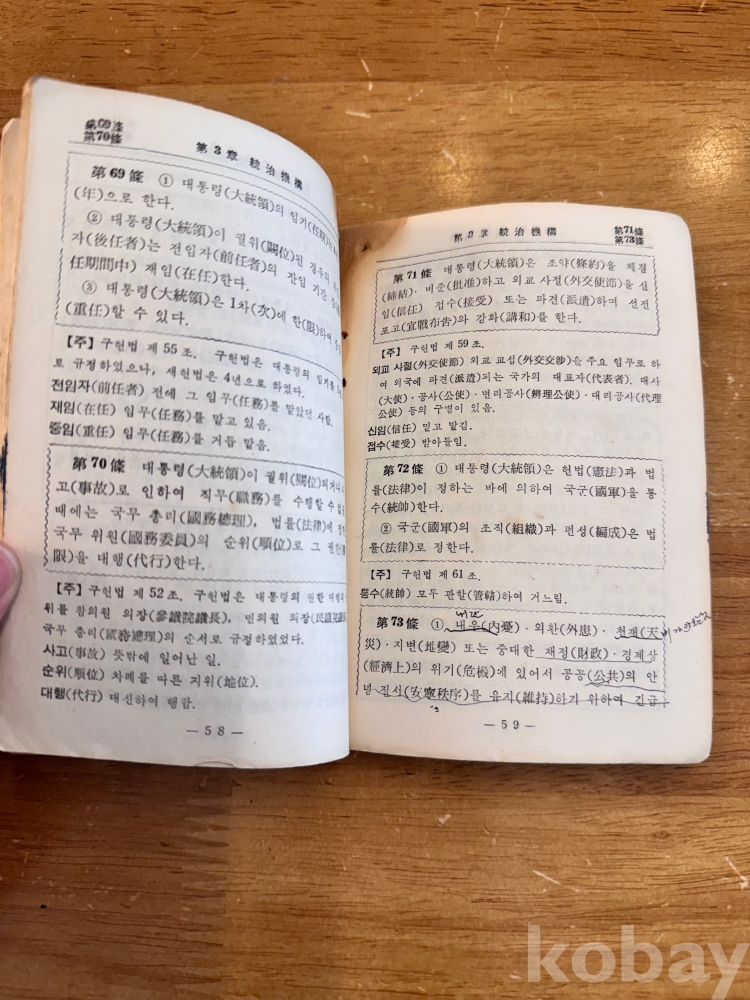 第69條
第70條
第3章 統治機構
第69條 ① 대통령(大統領)의 임기(任期)는
(年)으로 한다.
② 대통령(大統領)이 궐위(闕位)된 경우의 후
자(後任者)는 전임자(前任者)의 잔임 기간
任期間中) 재임(在任)한다.
③ 대통령(大統領)은 1차(次)에 한(限)하여
(重任)할 수 있다.
【주】 구헌법 제 55 조. 구헌법은 대통령의 임기를
로 규정하였으나, 새헌법은 4년으로 하였다.
전임자(前任者) 전에 그 임무(任務)를 맡았던 사람.
재임(在任) 임무(任務)를 맡고 있음.
중임(重任) 임무(任務)를 거듭 맡음.
第70條 대통령(大統領)이 궐위(闕位)되거나
고(事故)로 인하여 직무(職務)를 수행할 수 없을
때에는 국무 총리(國務總理), 법률(法律)에 정한
국무 위원(國務委員)의 순위(順位)로 그 권한(權
限)을 대행(代行)한다.
【주】 구헌법 제 52 조. 구헌법은 대통령의 권한 대행의
위를 참의원 의장(參議院議長), 민의원 의장(民議院議長
국무 총리(國務總理)의 순서로 규정하였었다.
사고(事故) 뜻밖에 일어난 일.
순위(順位) 차례를 따른 지위(地位).
대행(代行) 대신하여 행함.
— 58 —
第3章 統治機構
第71條
第73條
第71條 대통령(大統領)은 조약(條約)을 체결
(締結)·비준(批准)하고 외교 사절(外交使節)을 신
임(信任) 접수(接受) 또는 파견(派遣)하며 선전
포고(宣戰布告)와 강화(講和)를 한다.
【주】 구헌법 제 59 조.
외교 사절(外交使節) 외교 교섭(外交交涉)을 주요 임무로 하
여 외국에 파견(派遣)되는 국가의 대표자(代表者). 대사
(大使)·공사(公使)·변리공사(辨理公使)·대리공사(代理
公使) 등의 구별이 있음.
신임(信任) 믿고 맡김.
접수(接受) 받아들임.
第72條 ① 대통령(大統領)은 헌법(憲法)과 법
률(法律)이 정하는 바에 의하여 국군(國軍)을 통
수(統帥)한다.
② 국군(國軍)의 조직(組織)과 편성(編成)은 법
률(法律)로 정한다.
【주】 구헌법 제 61 조.
통수(統帥) 모두 관할(管轄)하여 거느림.
第73條 ① 내우(內憂)·외환(外患)·천재(天
災)·지변(地變) 또는 중대한 재정(財政)·경제상
(經濟上)의 위기(危機)에 있어서 공공(公共)의 안
녕 질서(安寧秩序)를 유지(維持)하기 위하여 긴급
— 59 —
kobay